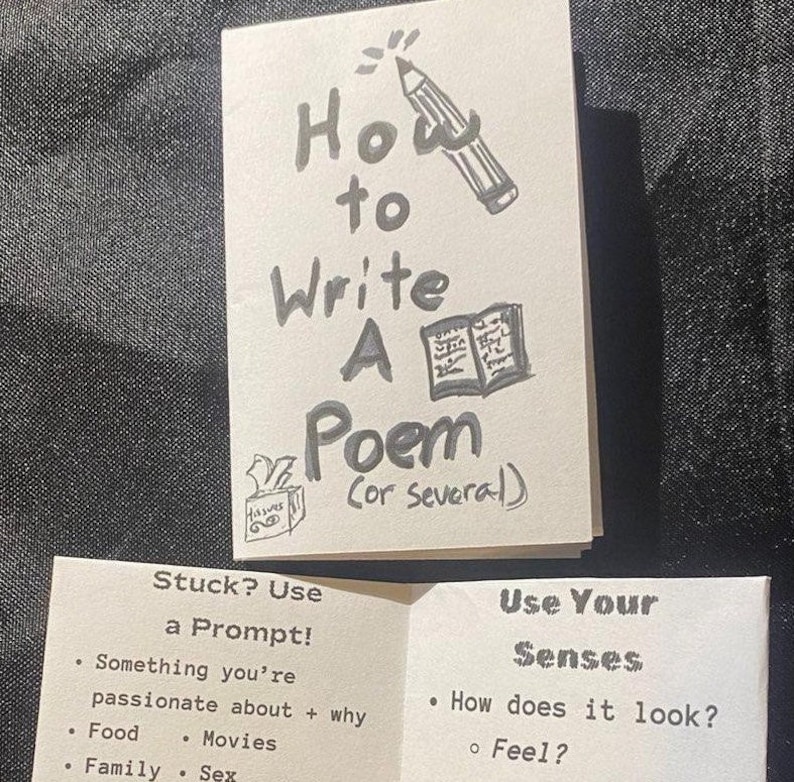 How
to
Write
A
Poem
(or several)
tissues
Stuck? Use
a Prompt!
• Something you're
passionate about + why
• Food • Movies
• Family • Sex
Use Your
Senses
• How does it look?
○ Feel?